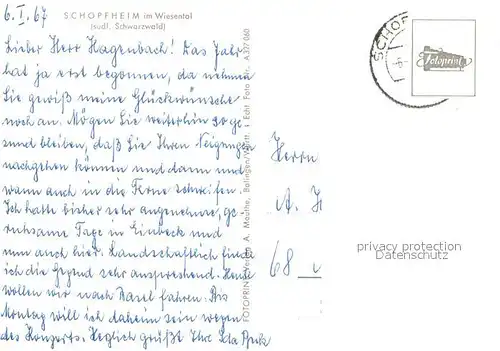 6. I. 67
SCHOPFHEIM im Wiesental
(südl. Schwarzwald)
Lieber Herr Hagenbach! Das Jahr
hat ja erst begonnen, da nehmen
Sie gewiß meine Glückwünsche
noch an. Mögen Sie weiterhin so ge-
sund bleiben, daß Sie Ihren Neigungen
nachgehen können und dann und
wann auch in die Ferne schweifen.
Ich hatte bisher sehr angenehme, ge-
ruhsame Tage in Einbeck und
nun auch hier. Landschaftlich finde
ich die Gegend sehr ansprechend. Heute
wollen wir nach Basel fahren. Bis
Montag will ich daheim sein wegen
des Konzerts. Herzlich grüßt Ihre Ida
FOTOPRINT Verlag A. Mauthe, Balingen/Württ. Echt Foto A 377 060
SCHOPF
Fotoprint
Herrn
A. H
68
privacy protection
Datenschutz